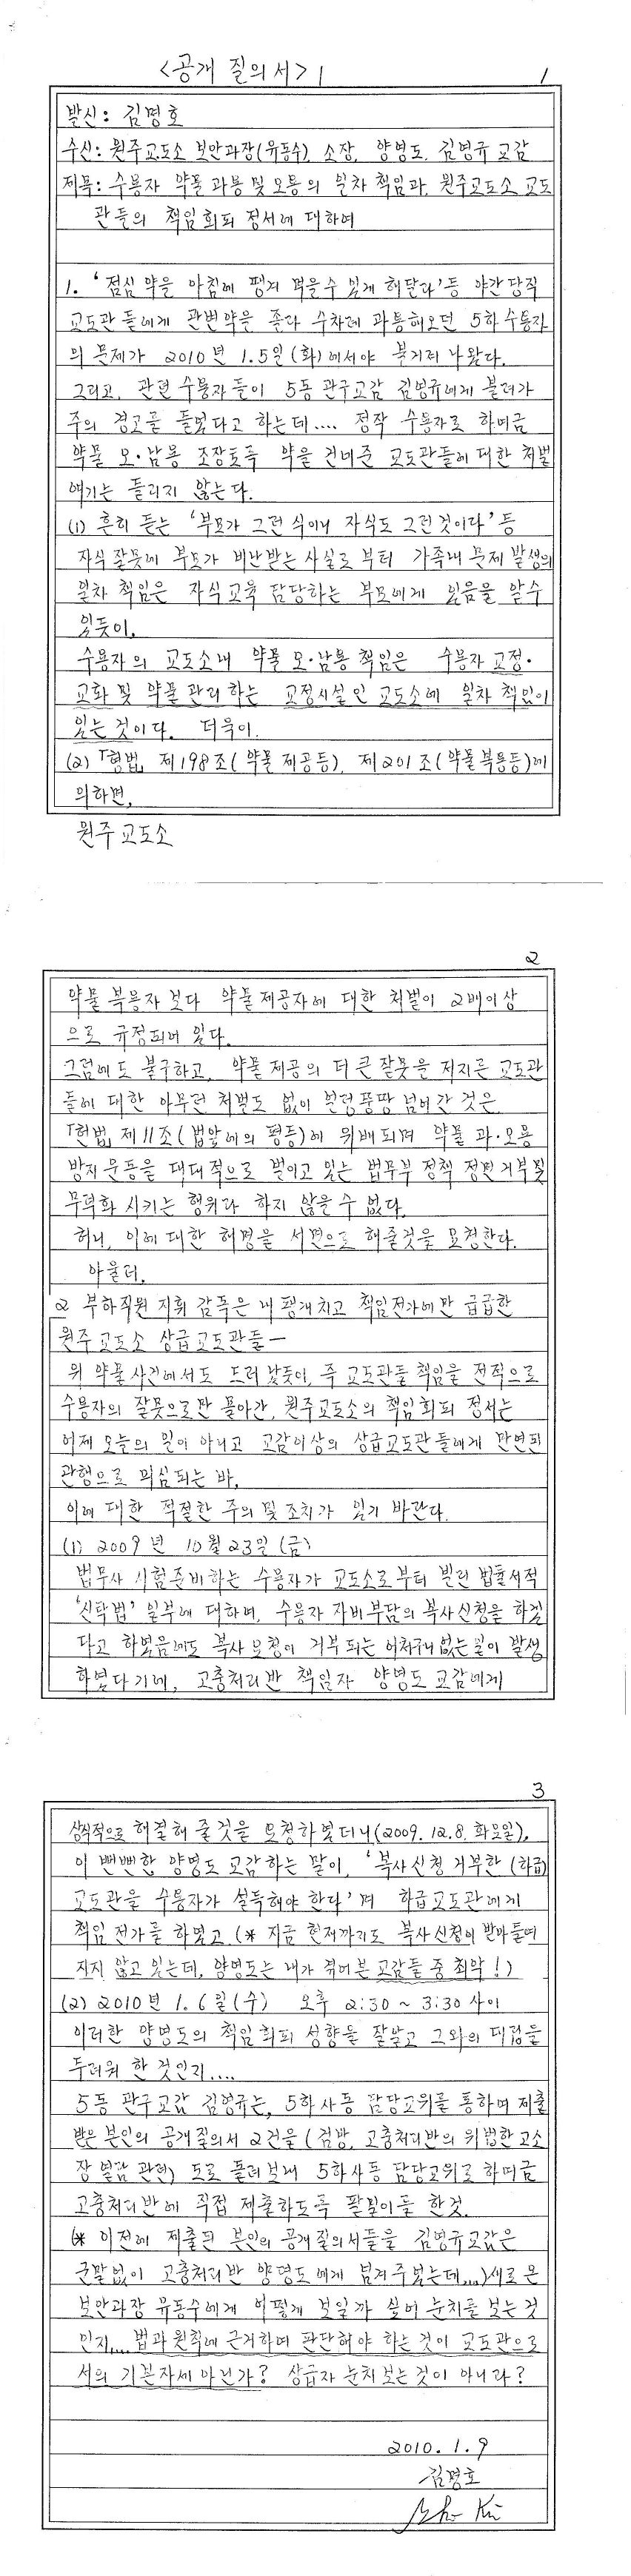 <공개 질의서> 1
1
발신: 김명호
수신: 원주교도소 보안과장(유동수), 소장, 양영도, 김영규 교감
제목: 수용자 약물 과·남용 및 오용의 일차 책임과, 원주교도소 교도
관들의 책임회피 정서에 대하여
1. '점심 약을 아침에 땡겨 먹을수 있게 해달라' 등 야간당직
교도관들에게 관변약을 졸라 수차례 과용해오던 5하 수용자
의 문제가 2010년 1.5일(화)에서야 불거져 나왔다.
그리고, 관련 수용자들이 5동 관구교감 김영규에게 불려가
주의 경고를 들었다고 하는데.... 정작 수용자로 하여금
약물 오·남용 조장토록 약을 건네준 교도관들에 대한 처벌
얘기는 들리지 않는다.
(1) 흔히 듣는 '부모가 그런 식이니 자식도 그런것이다' 등
자식 잘못에 부모가 비난받는 사실로 부터 가족내 문제 발생의
일차 책임은 자식교육 담당하는 부모에게 있음을 알수
있듯이,
수용자의 교도소내 약물 오·남용 책임은 수용자 교정·
교화 및 약물관리 하는 교정시설인 교도소에 일차 책임이
있는 것이다. 더욱이,
(2) 「형법」 제198조(약물 제공등), 제201조(약물복용등)에
의하면,
원주교도소
2
약물 복용자 보다 약물제공자에 대한 처벌이 2배이상
으로 규정되어 있다.
그럼에도 불구하고, 약물 제공의 더 큰 잘못을 저지른 교도관
들에 대한 아무런 처벌도 없이 얼렁뚱땅 넘어간 것은
「헌법」 제11조(법앞에의 평등)에 위배되며 약물 과·오용
방지운동을 대대적으로 벌이고 있는 법무부 정책 정면거부 및
무력화 시키는 행위라 하지 않을 수 없다.
허니, 이에 대한 해명을 서면으로 해줄것을 요청한다.
아울러,
2 부하직원 지휘 감독은 내팽개치고 책임전가에만 급급한
원주교도소 상급교도관들 —
위 약물사건에서도 드러났듯이, 즉 교도관들 책임을 전적으로
수용자의 잘못으로만 몰아간, 원주교도소의 책임회피 정서는
어제 오늘의 일이 아니고 교감이상의 상급교도관들에게 만연된
관행으로 의심되는 바,
이에 대한 적절한 주의 및 조치가 있기 바란다.
(1) 2009년 10월 23일(금)
법무사 시험준비하는 수용자가 교도소로부터 빌린 법률서적
'신탁법' 일부에 대하여, 수용자 자비부담의 복사신청을 하겠
다고 하였음에도 복사 요청이 거부되는 어처구니없는 일이 발생
하였다기에, 고충처리반 책임자 양영도 교감에게
3
상식적으로 해결해 줄것을 요청하였더니(2009. 12.8. 화요일),
이 뻔뻔한 양영도 교감하는 말이, '복사신청 거부한 (하급)
교도관을 수용자가 설득해야 한다'며 하급교도관에게
책임 전가를 하였고, (* 지금 현재까지도 복사신청이 받아들여
지지 않고 있는데, 양영도는 내가 겪어본 교감들 중 최악!)
(2) 2010년 1.6일(수) 오후 2:30 ~ 3:30 사이
이러한 양영도의 책임회피 성향을 잘알고 그와의 대접을
두려워 한 것인지....
5동 관구교감 김영규는, 5하사동 담당교위를 통하여 제출
받은 본인의 공개질의서 2건을 (검방, 고충처리반의 위법한 고소
장 열람 관련) 도로 돌려보내 5하사동 담당교위로 하여금
고충처리반에 직접 제출하도록 팔밀이를 한것.
(* 이전에 제출된 본인의 공개질의서들을 김영규교감은
군말없이 고충처리반 양영도에게 넘겨주었는데....) 새로 온
보안과장 유동수에게 어떻게 보일까 싶어 눈치를 보는 것
인지.... 법과 원칙에 근거하여 판단해야 하는것이 교도관으로
서의 기본자세 아닌가? 상급자 눈치보는 것이 아니라?
2010. 1. 9
김명호